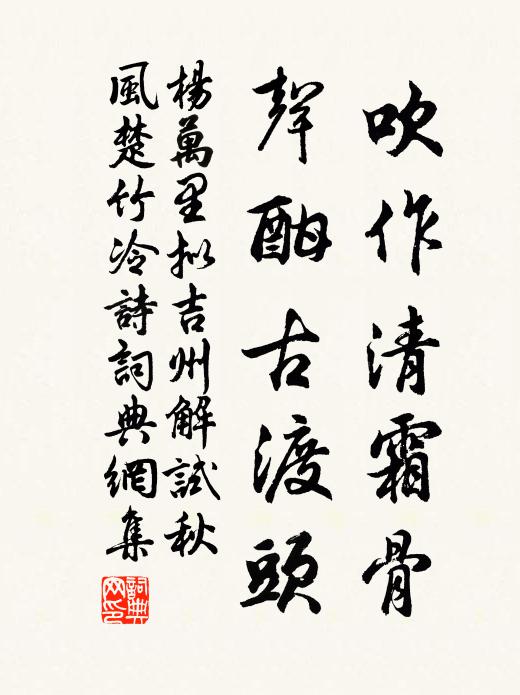 吹作清霜骨
聲酣古渡頭
楊萬里拟吉州解試秋
風楚竹冷詩詞典網集
詞典
网印